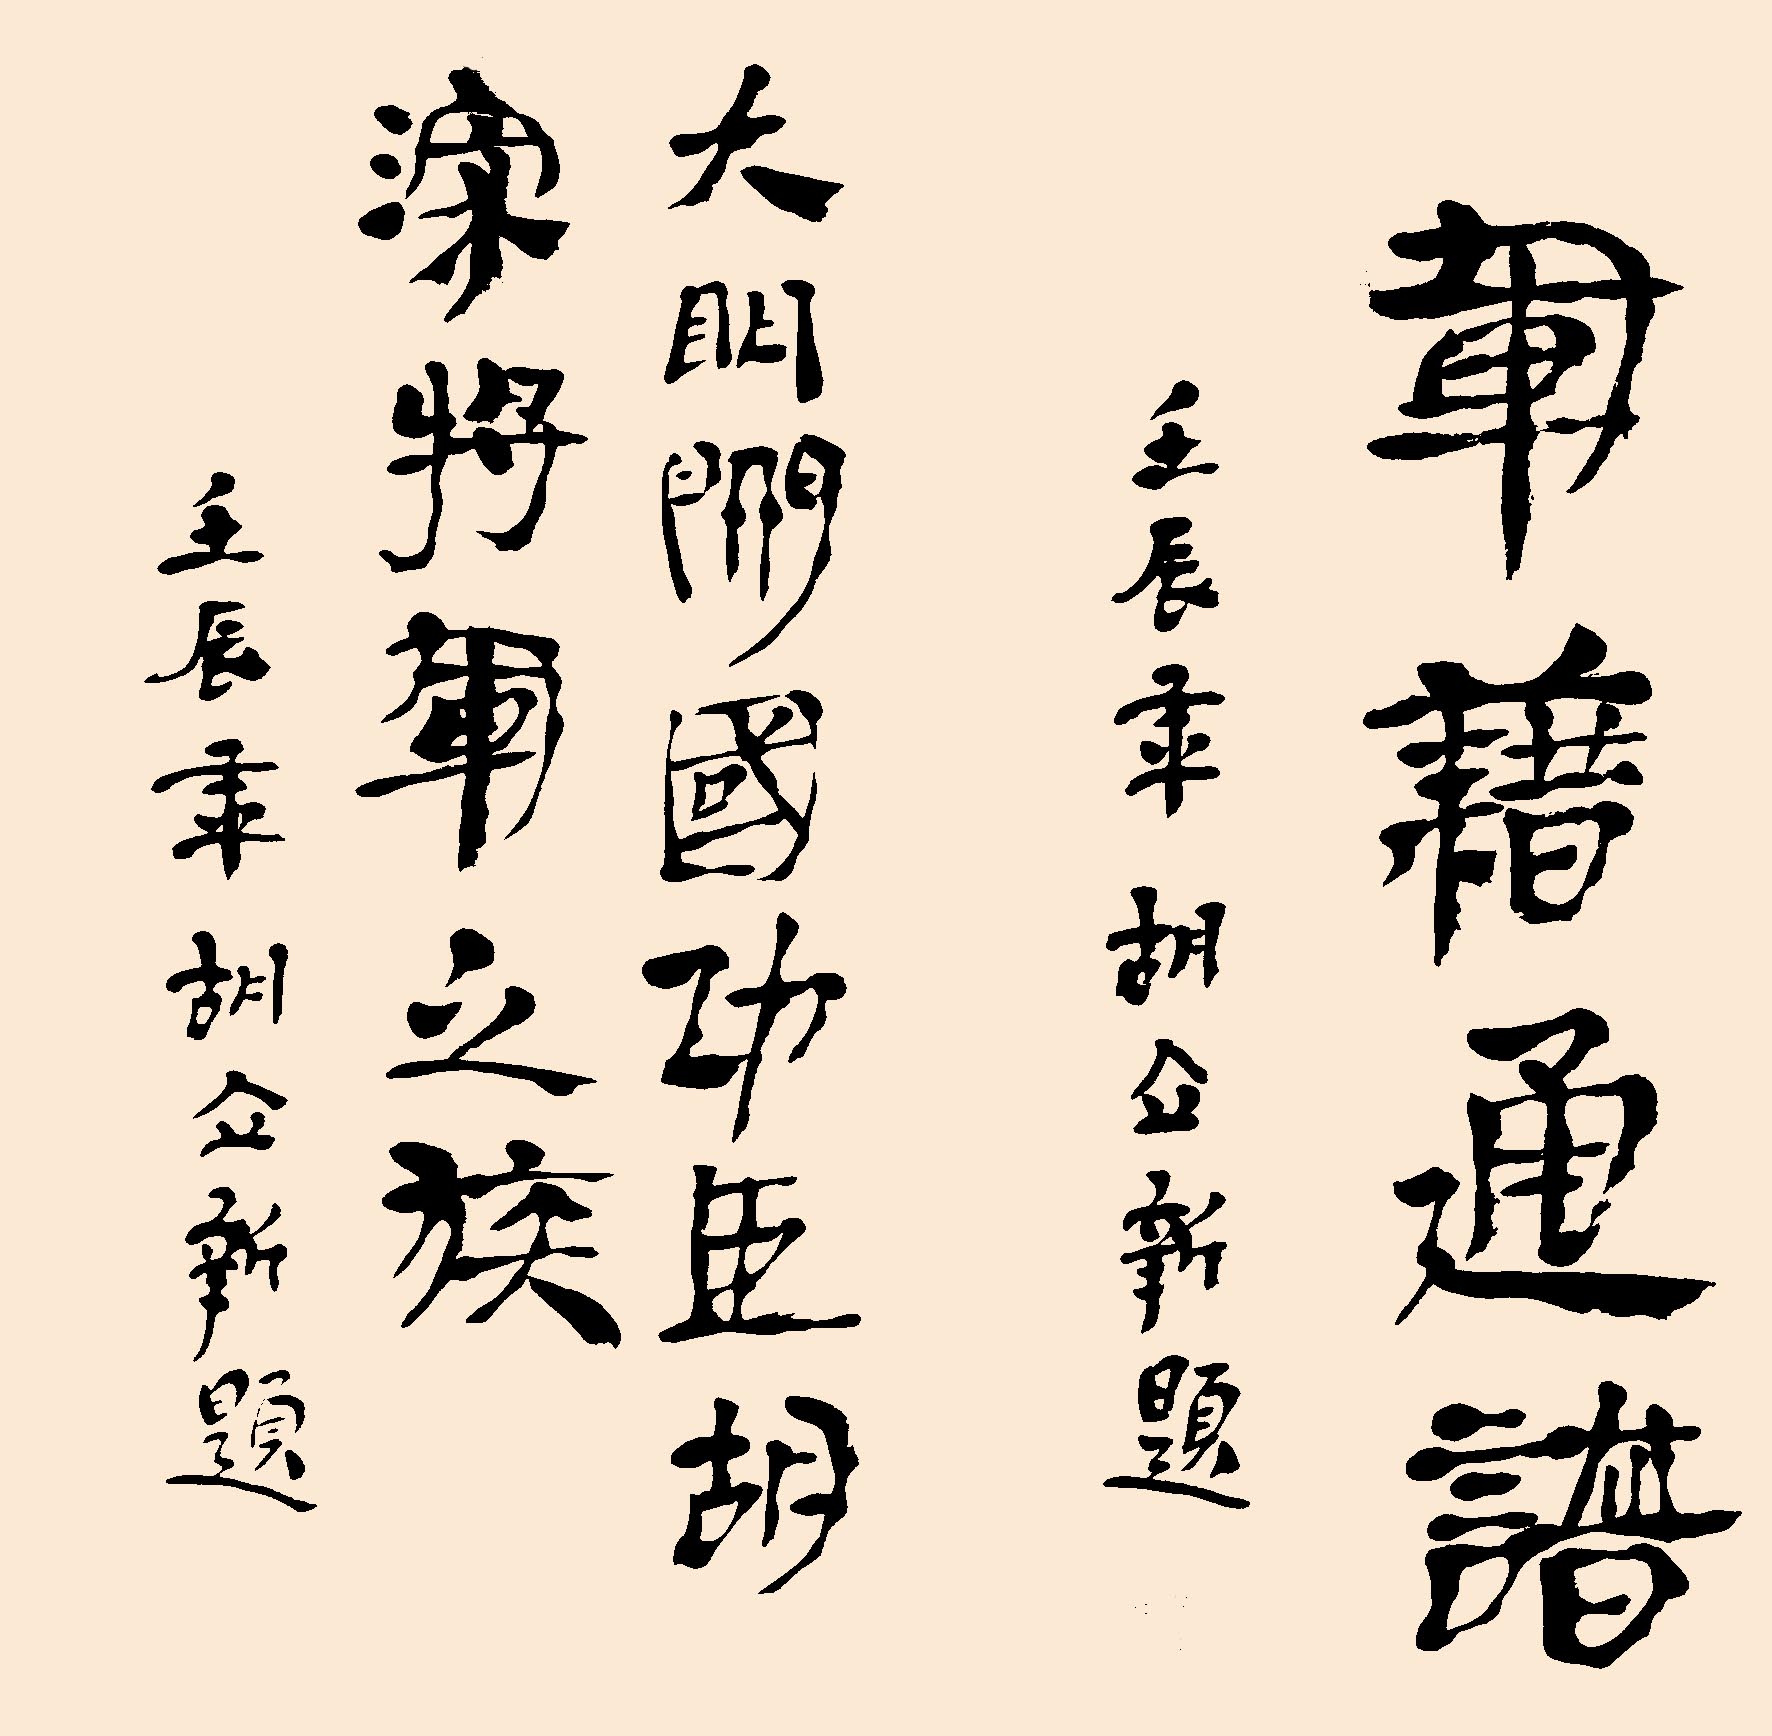 軍藉通譜
壬辰年 胡企新題
大明開國功臣胡
深將軍之族
壬辰年 胡企新題